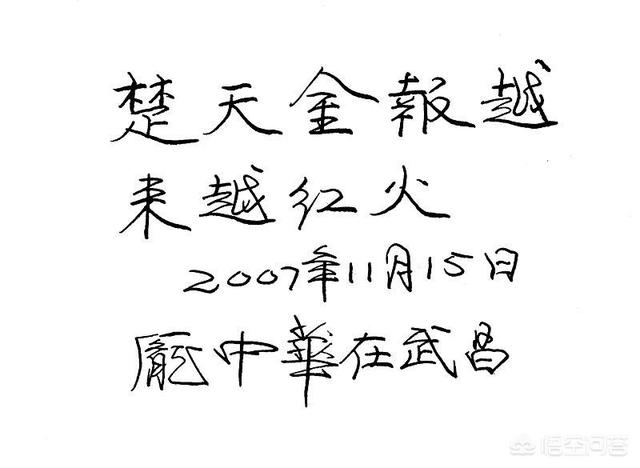 楚天金報越
来越红火
2007年11月15日
龐中華在武昌
悟空问答